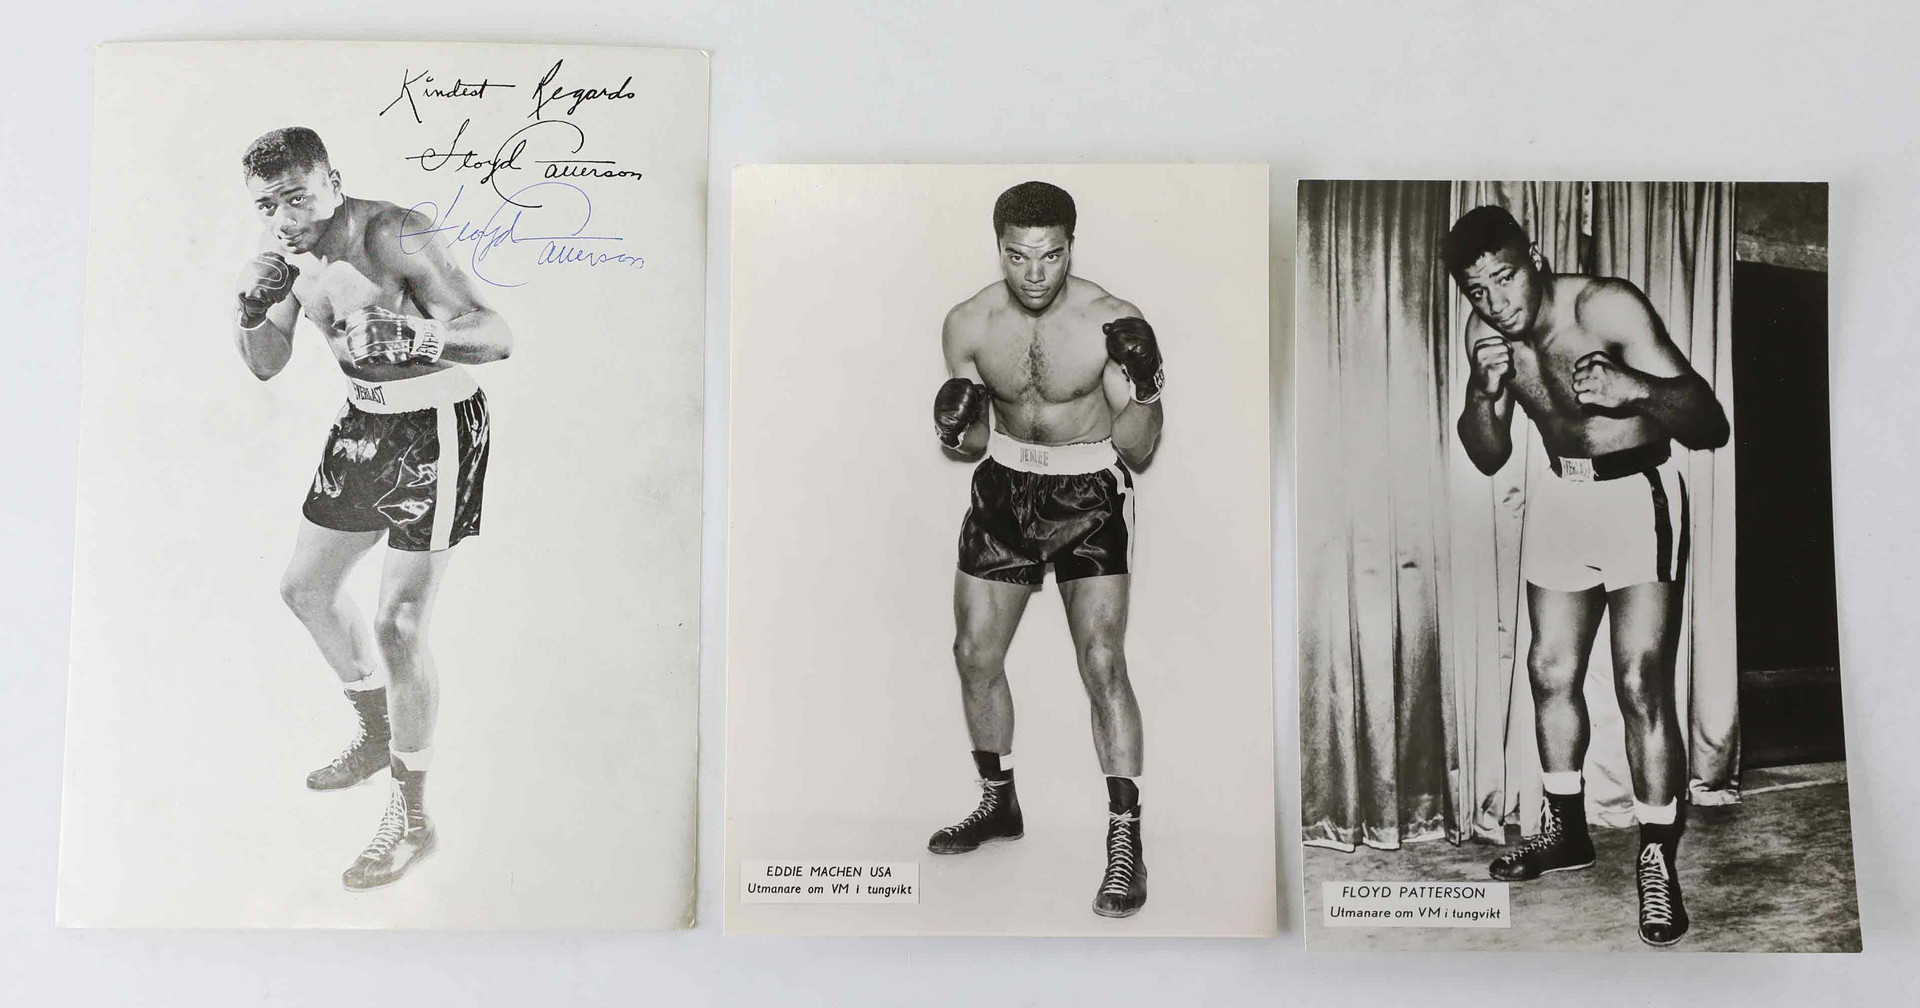 Kindest Regards
Floyd Patterson
Floyd Patterson
EVERLAST
BENLEE
EDDIE MACHEN USA
Utmanare om VM i tungvikt
FLOYD PATTERSON
Utmanare om VM i tungvikt